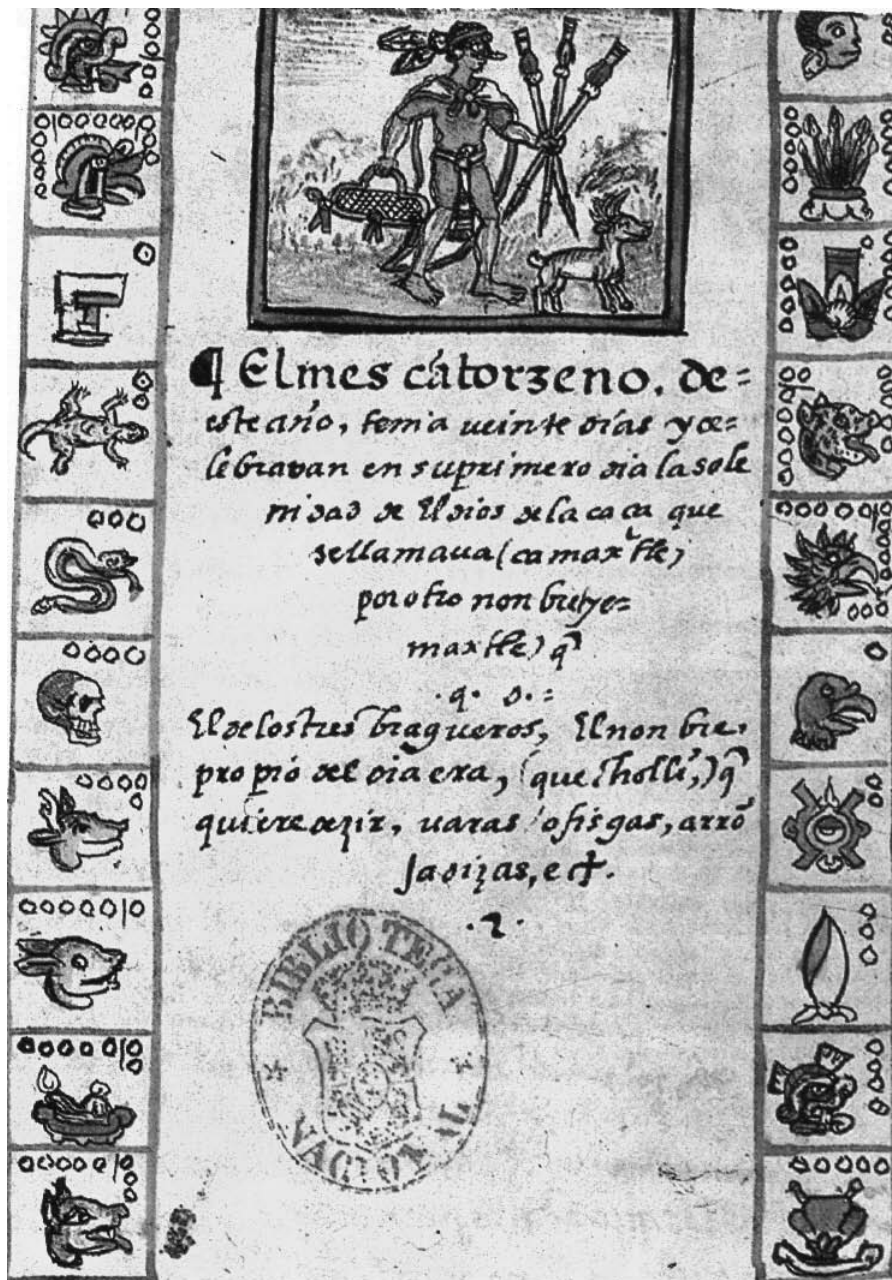 ¶ El mes catorzeno. de=
este año, tenia ueinte dias y ce=
lebrauan en su primero dia la sole
nidad de El dios de la caça que
se llamaua (camaxtle)
por otro nonbre (ye=
maxtle) q̃
.q. d.=
El de los tres bragueros, El nonbre,
proprio del dia era, (quecholli,) q̃
quiere dezir, uaras o fisgas, arro
jadizas, etc.
.2.
BIBLIOTECA
NACIONAL